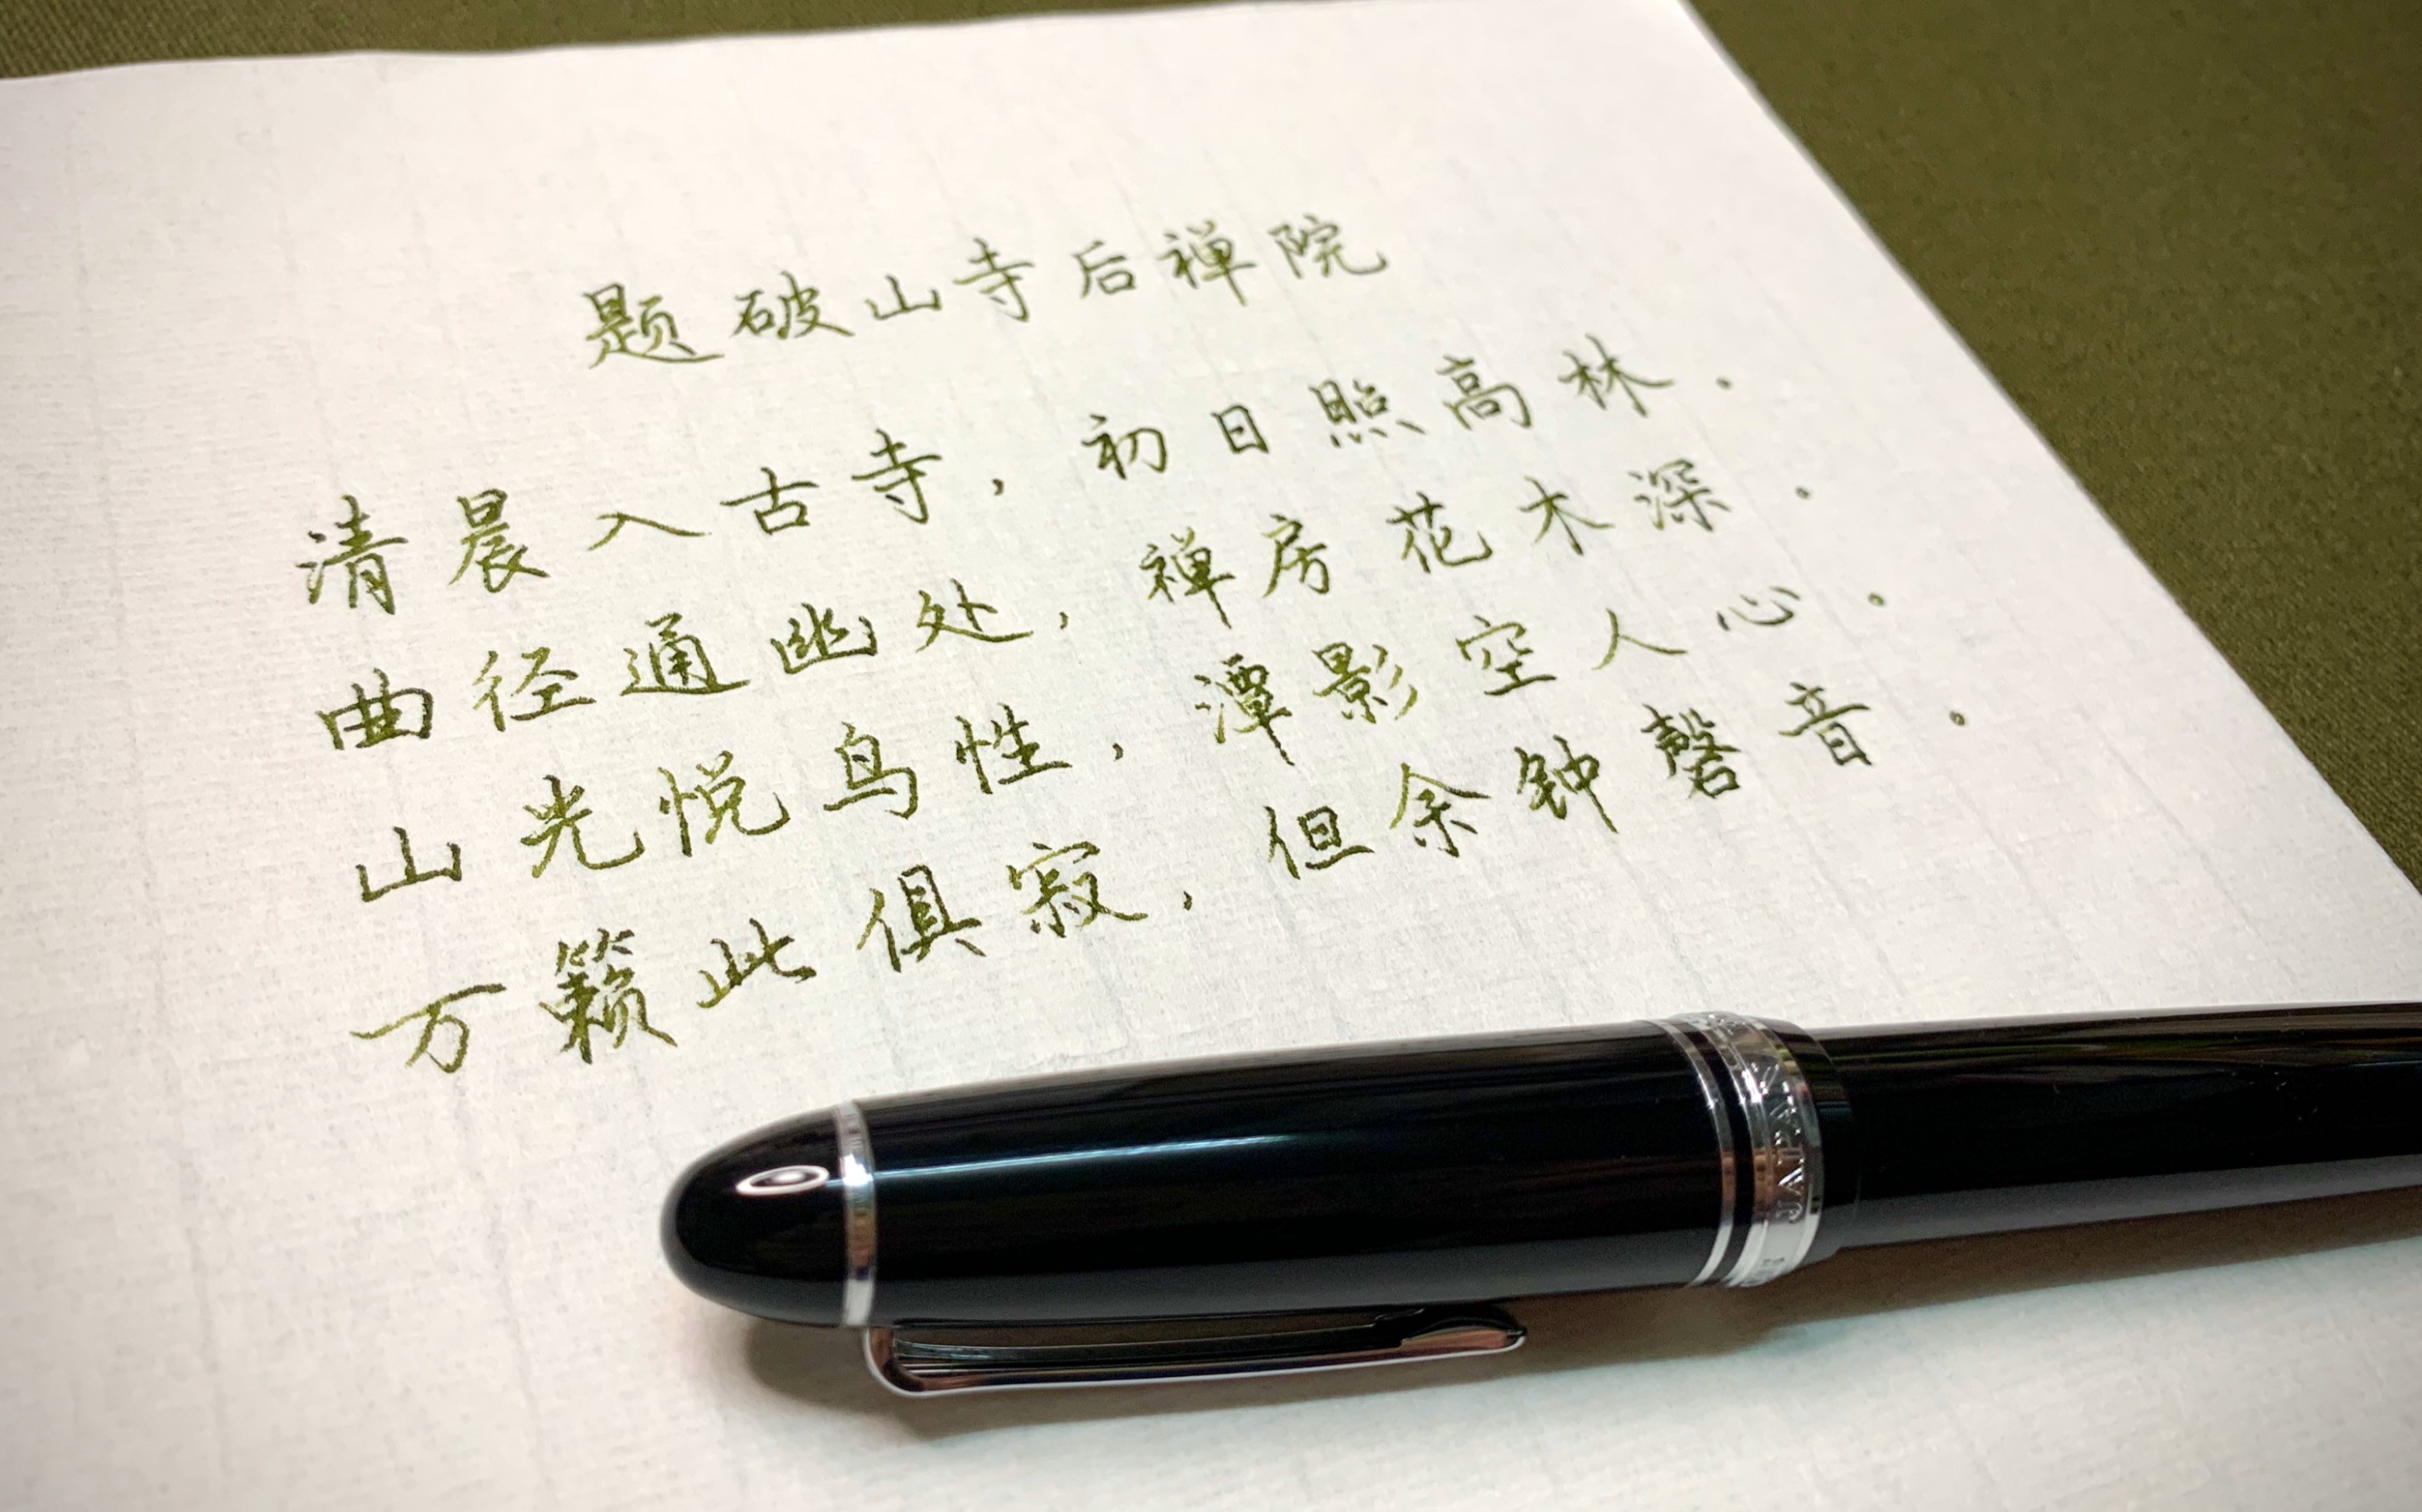 题破山寺后禅院
清晨入古寺，初日照高林。
曲径通幽处，禅房花木深。
山光悦鸟性，潭影空人心。
万籁此俱寂，但余钟磬音。
JAPAN